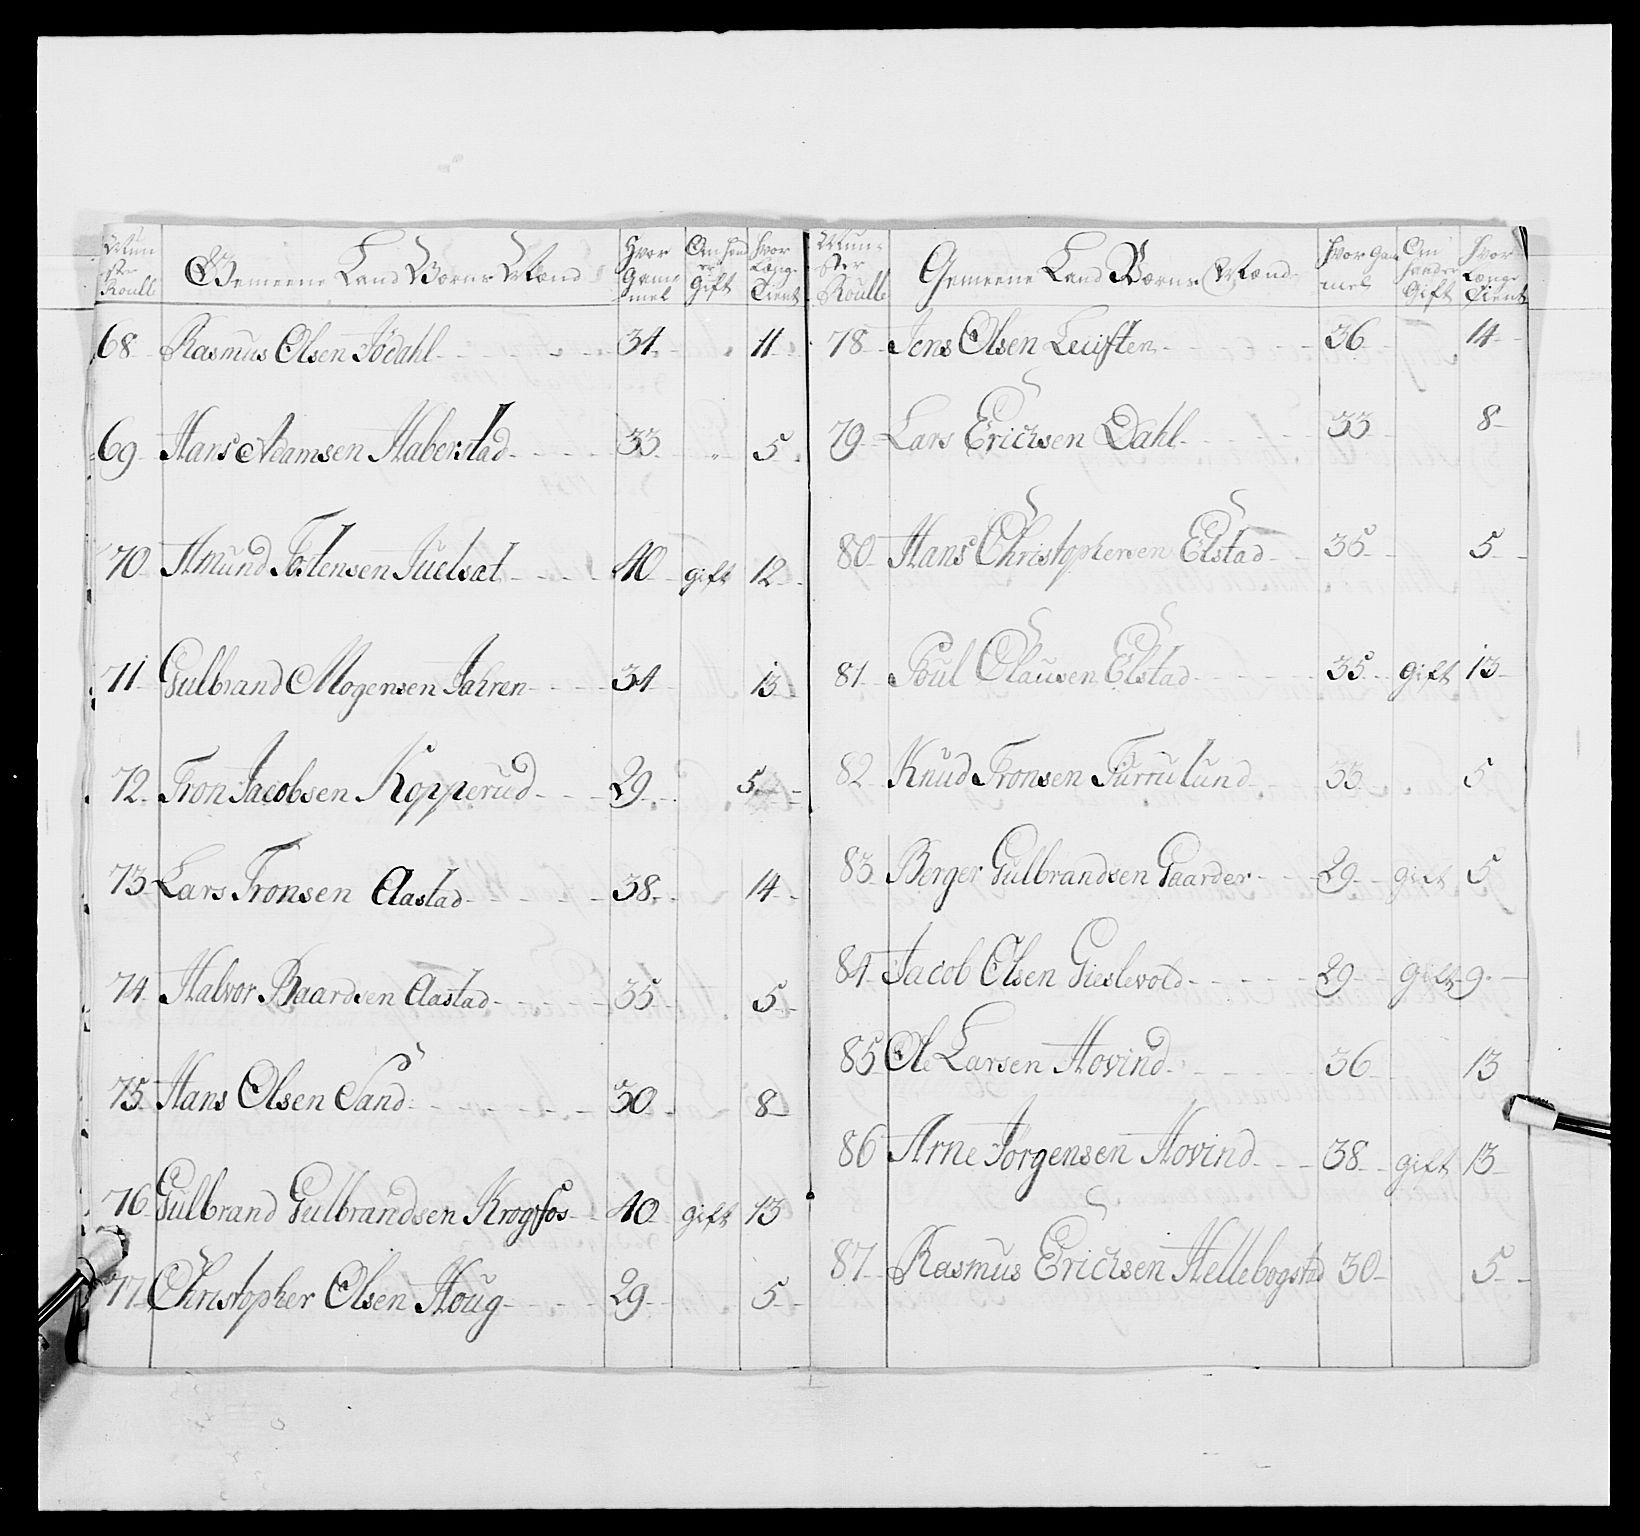 Mun-
ster
Roulle
Gemeene Land Værns Mænd
Hvor
Gam
mel
Om hand
er
Gift
hvor
Længe
Tient
68 Rasmus Olsen Jödahl 34 11
69 Hans Adamsen Haberstad 33 " 5
70 Amund Tostensen Juelsæt 40 gift 12
71 Gulbrand Mogensen Jahren 34 13
72 Tron Jacobsen Kopperud 29 5
73 Lars Tronsen Aastad 38 14
74 Halvor Baardsen Aastad 35 5
75 Hans Olsen Sand 30 8
76 Gulbrand Gulbrandsen Krogfos 40 gift 13
77 Christopher Olsen Houg 29 5
Mun-
ster
Roulle
Gemeene Land Værns Mænd
Hvor Gam
mel
Om
hand er
Gift
Hvor
Længe
Tient
78 Jens Olsen Leuisten 36 14
79 Lars Erichsen Dahl 33 8
80 Hans Christophersen Elstad 35 5
81 Poul Clausen Elstad 35 gift 13
82 Knud Tronsen Furrulund 33 5
83 Berger Gulbrandsen Gaarder 29 gift 5
84 Jacob Olsen Gieslevold 29 gift 9
85 Ole Larsen Hovind 36 13
86 Arne Jörgensen Hovind 38 gift 13
87 Rasmus Erichsen Hellebogstad 30 5